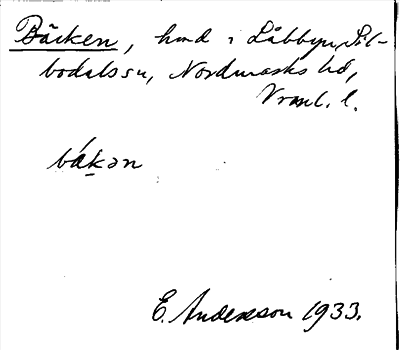 Bäcken, hmd i Låbbyn, Sil-
bodals sn, Nordmarks hd,
Vrml. l.
bákən
E. Andersson 1933.